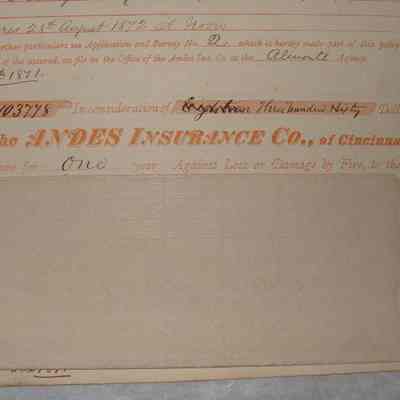 res 25th August 1872 at Noon
other particulars see Application and Survey No. 2, which is hereby made part of this policy
of the assured, on file in the Office of the Andes Ins. Co. at the Almonte Agency
1871.
103778 In consideration of three hundred sixty Doll
he ANDES INSURANCE CO., of Cincinna
for One year Against Loss or Damage by Fire, to the